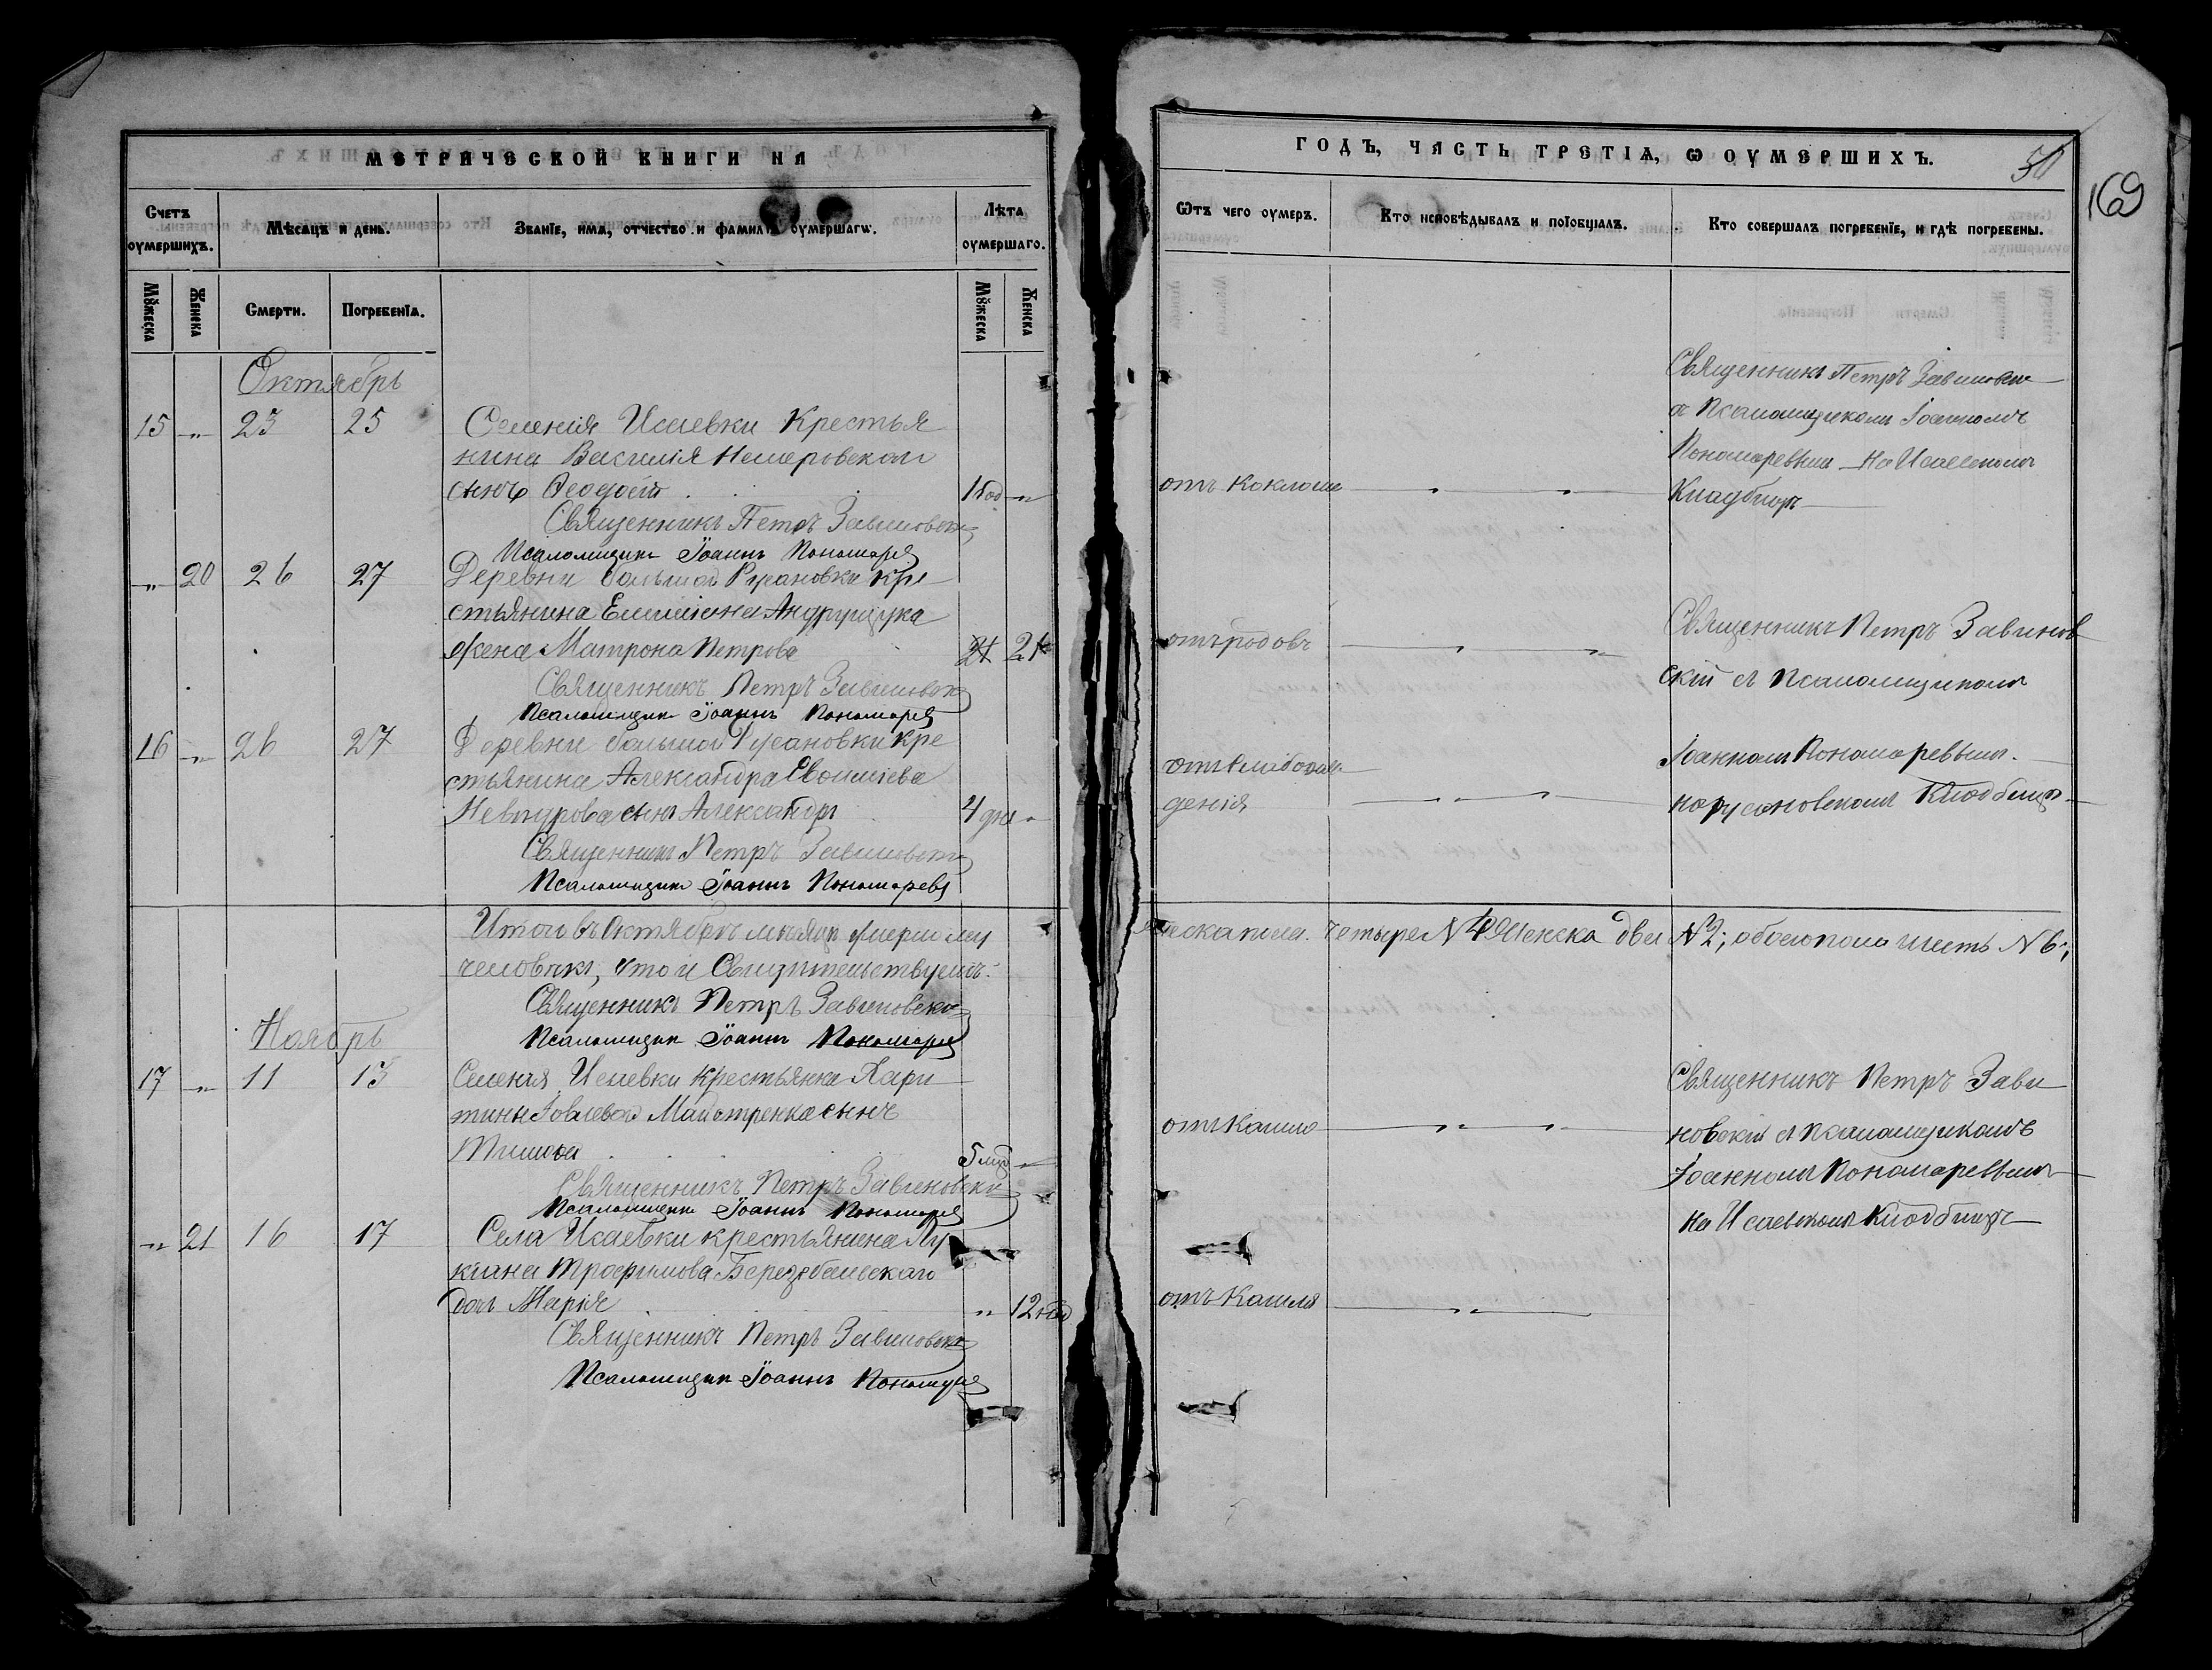 МЕТРИЧЕСКОЙ КНИГИ НА
Счетъ оумершихъ.
Мѣсяцъ и день.
Званіе, имя, отчество и фамилія оумершагѡ.
Лѣта оумершаго.
Мꙋжеска
Женска
Смерти.
Погребенїѧ.
Мꙋжеска
Женска
Октябрь
15 " 23 25 Селенія Исаевки Крестья
нина Василія Немеровскаго
сынъ Ѳеодосій 1 год "
Священникъ Петръ Завиновскій
Псаломщикъ Іоаннъ Пономаревъ
" 20 26 27 Деревни большой Русановки кре
стьянина Емиліана Андрущука
жена Матрона Петрова 21
Священникъ Петръ Завиновскій
Псаломщикъ Іоаннъ Пономаревъ
16 " 26 27 Деревни большой Русановки кре
стьянина Александра
сынъ Александръ 4 дня "
Священникъ Петръ Завиновскій
Псаломщикъ Іоаннъ Пономаревъ
Итого въ Октябрѣ мѣсяцѣ умерло му
человѣкъ, что и Свидѣтельствуемъ.
Священникъ Петръ Завиновскій
Псаломщикъ Іоаннъ Пономаревъ
Ноябрь
17 " 11 13 Селенія Исаевки крестьянки Хари
тины Іовлевой Майстренка сынъ
5 "
Священникъ Петръ Завиновскій
Псаломщикъ Іоаннъ Пономаревъ
" 21 16 17 Села Исаевки крестьянина Лу
кіана Трофимова
дочь Марія " 12
Священникъ Петръ Завиновскій
Псаломщикъ Іоаннъ Пономаревъ
ГОДЪ, ЧАСТЬ ТРЕТІѦ, Ѡ ОУМЕРШИХЪ.
50
169
Ѿтъ чего оумеръ.
Кто исповѣдывалъ и пріобщалъ.
Кто совершалъ погребенїе, и гдѣ погребены.
Священникъ Петръ Завиновскій
съ Псаломщикомъ Іоанномъ
Пономаревымъ На Исаевскомъ
отъ Коклюша " "
Кладбищѣ
Священникъ Петръ Завинов
отъ родовъ " "
скій съ Псаломщикомъ
Іоанномъ Пономаревымъ.
денія " "
на русановскомъ Кладбищѣ
жеска пола четыре № 4 Женска двѣ № 2; обоего пола шесть № 6;
Священникъ Петръ Зави
отъ Кашля " "
новскій съ псаломщикомъ
Іоанномъ Пономаревымъ
На Исаевскомъ Кладбищѣ
отъ Кашля " "